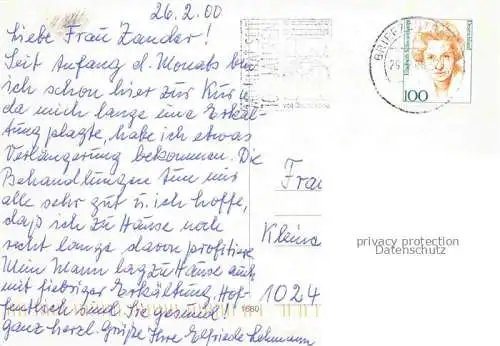 26.2.00
Liebe Frau Zander!
Seit Anfang d. Monats bin
ich schon hier zur Kur u.
da mich lange eine Erkäl-
tung plagte, habe ich etwas
Verlängerung bekommen. Die
Behandlungen tun mir
alle sehr gut u. ich hoffe,
daß ich zu Hause noch
recht lange davon profitiere
Mein Mann lag zu Hause auch
mit fiebriger Erkältung, Hof-
fentlich sind Sie gesund!
Ganz herzl. Grüße Ihre Elfriede Lehmann
BRIEF
Deutschland
100
Frau
Kleine
10247
1660
privacy protection
Datenschutz